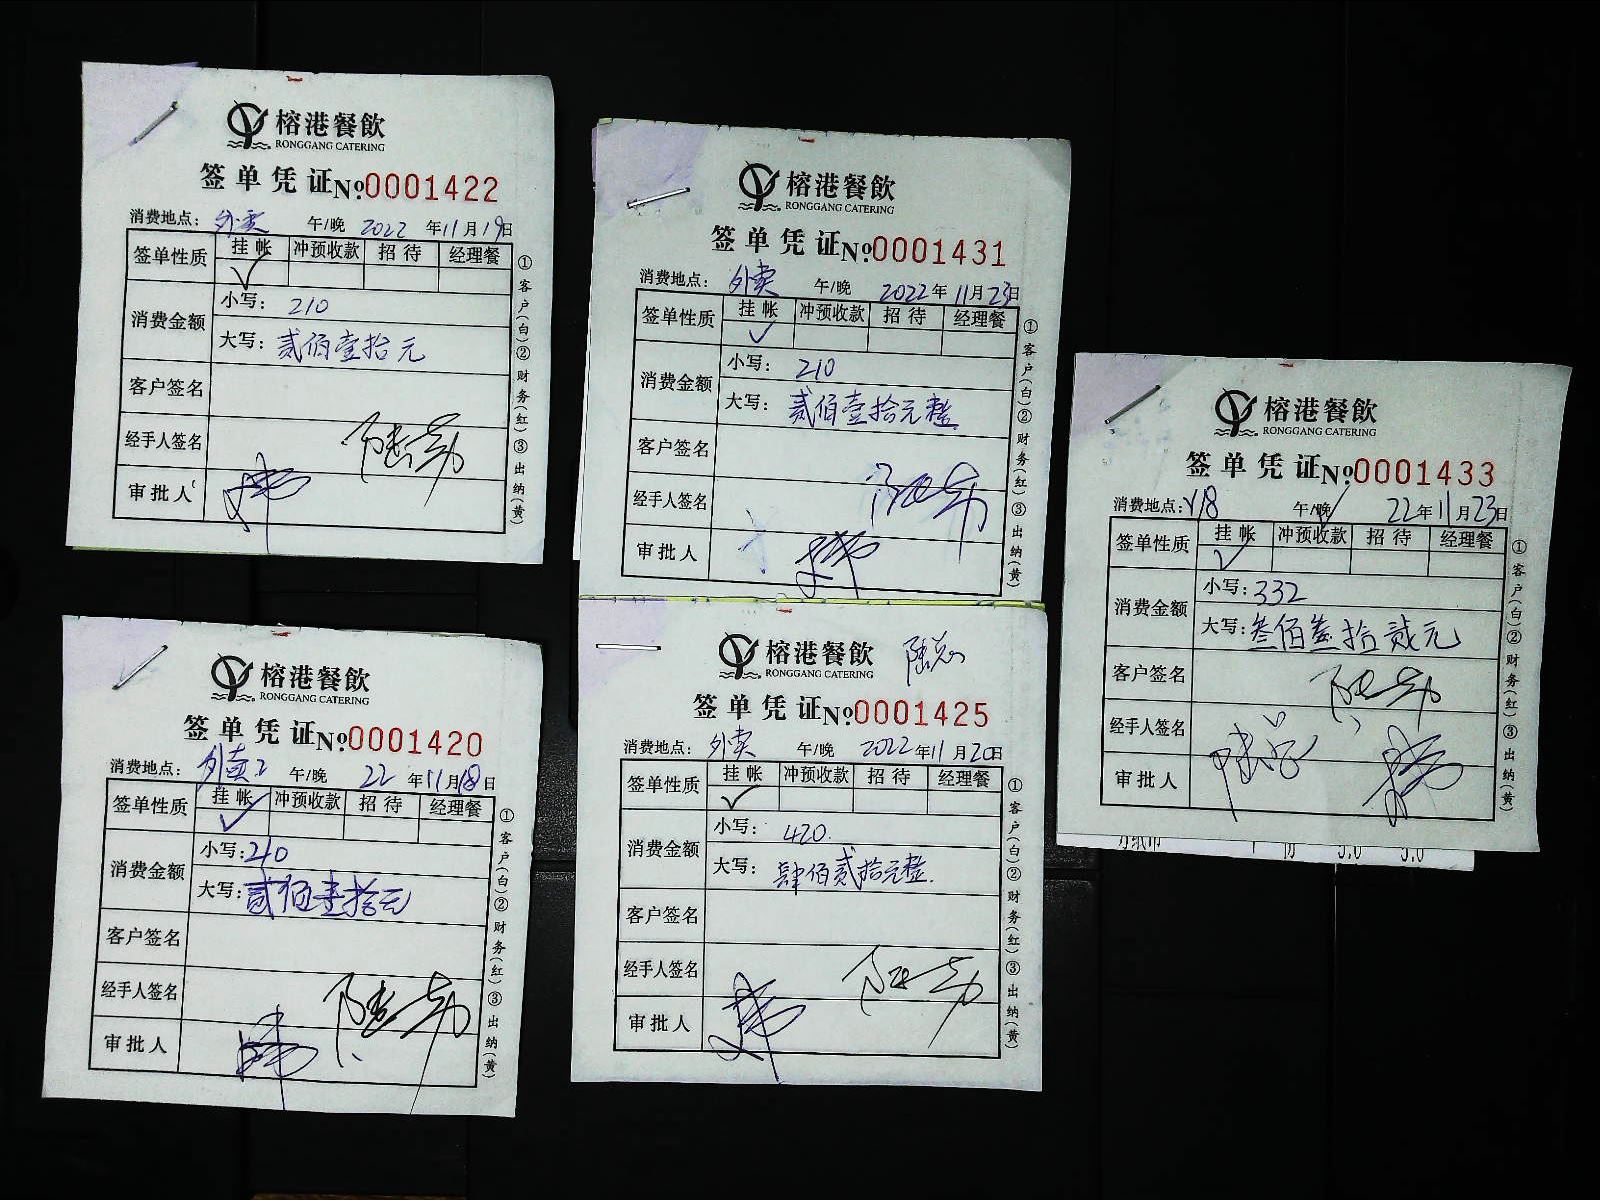 榕港餐飲
RONGGANG CATERING
签单凭证 №0001422
消费地点: 外卖 午/晚 2022年11月19日
签单性质 挂帐 冲预收款 招待 经理餐
✓
消费金额
小写: 210
大写: 贰佰壹拾元
客户签名
经手人签名
审批人
①客户(白)②财务(红)③出纳(黄)
榕港餐飲
RONGGANG CATERING
签单凭证 №0001431
消费地点: 外卖 午/晚 2022年11月23日
签单性质 挂帐 冲预收款 招待 经理餐
✓
消费金额
小写: 210
大写: 贰佰壹拾元整
客户签名
经手人签名
审批人
①客户(白)②财务(红)③出纳(黄)
榕港餐飲
RONGGANG CATERING
签单凭证 №0001433
消费地点: V18 午/晚✓ 22年11月23日
签单性质 挂帐 冲预收款 招待 经理餐
✓
消费金额
小写: 332
大写: 叁佰叁拾贰元
客户签名
经手人签名
审批人
①客户(白)②财务(红)③出纳(黄)
榕港餐飲
RONGGANG CATERING
签单凭证 №0001420
消费地点: 外卖2 午/晚 22年11月18日
签单性质 挂帐 冲预收款 招待 经理餐
✓
消费金额
小写: 210
大写: 贰佰壹拾元
客户签名
经手人签名
审批人
①客户(白)②财务(红)③出纳(黄)
榕港餐飲 陆总
RONGGANG CATERING
签单凭证 №0001425
消费地点: 外卖 午/晚 2022年11月20日
签单性质 挂帐 冲预收款 招待 经理餐
✓
消费金额
小写: 420.
大写: 肆佰贰拾元整.
客户签名
经手人签名
审批人
①客户(白)②财务(红)③出纳(黄)